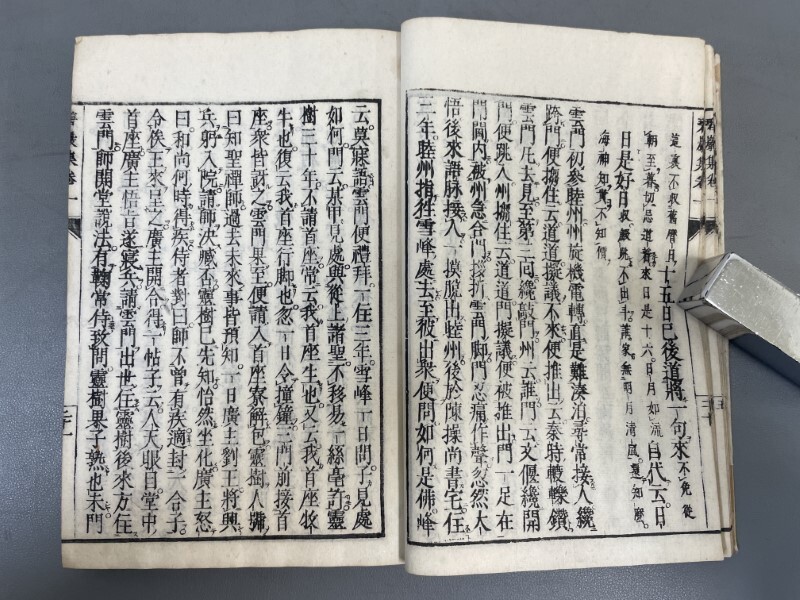 碧巖集卷一
這裏不收舊曆日十五日已後道將一句來不免從
朝至暮切忌道著來日是十六日月如流自代云日
日是好日收鰕跳不出斗誰家無明月清風還知麼
海神知貴不知價
雲門初參睦州州旋機電轉直是難湊泊尋常接人纔
跨門便搊住云道道擬議不來便推出云秦時𨍏轢鑽
雲門凡去見至第三回纔敲門州云誰門云文偃纔開
門便跳入州搊住云道道門擬議便被推出門一足在
門閫內被州急合門拶折雲門脚門忍痛作聲忽然大
悟後來語脉接人一摸脫出睦州後於陳操尚書宅住
三年睦州指往雪峰處去至彼出衆便問如何是佛峰
云莫寐語雲門便禮拜一住三年雪峰一日問子見處
如何門云某甲見處與從上諸聖不移易一絲毫許靈
樹二十年不請首座常云我首座生也又云我首座牧
牛也復云我首座行脚也忽一日令撞鐘三門前接首
座衆皆訝之雲門果至便請入首座寮解包靈樹人號
曰知聖禪師過去未來事皆預知一日廣主劉王將興
兵躬入院請師決臧否靈樹已先知怡然坐化廣主怒
曰和尚何時得疾侍者對曰師不曾有疾適封一合子
令俟王來呈之廣主開合得一帖子云人天眼目堂中
首座廣主悟旨遂寢兵請雲門出世住靈樹後來方住
雲門師開堂說法有鞠常侍致問靈樹果子熟也未門
碧巖集卷一